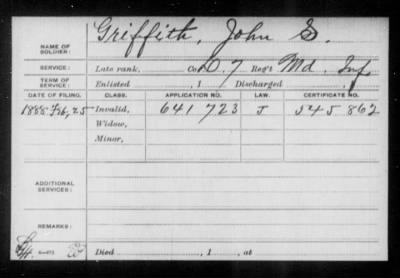 NAME OF SOLDIER: Griffith, John G.
SERVICE: Late rank, Co. D, 7 Reg't Md. Inf.
TERM OF SERVICE: Enlisted , 1 Discharged , 1
DATE OF FILING. CLASS. APPLICATION NO. LAW. CERTIFICATE NO.
1888 Feb, 25 Invalid, 641 723 J 545 862
Widow,
Minor,
ADDITIONAL SERVICES:
REMARKS:
Died , 1 , at